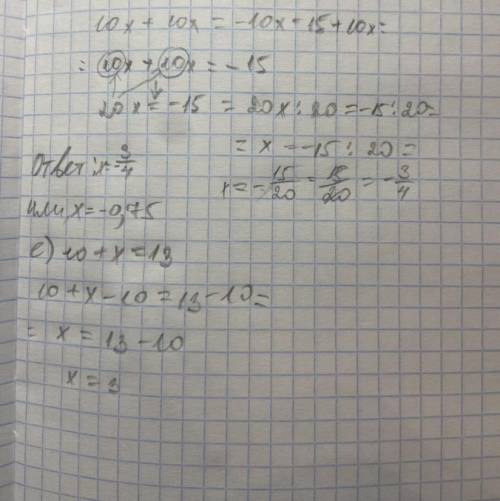 10x + 10x = -10x - 15 + 10x =
= 10x + 10x = -15
20x = -15 = 20x : 20 = -15 : 20 =
= x = -15 : 20 =
x = -15/20 = -15/20 = -3/4
Ответ: x = -3/4
или x = -0,75
е) 10 + x = 13
10 + x - 10 = 13 - 10 =
= x = 13 - 10
x = 3